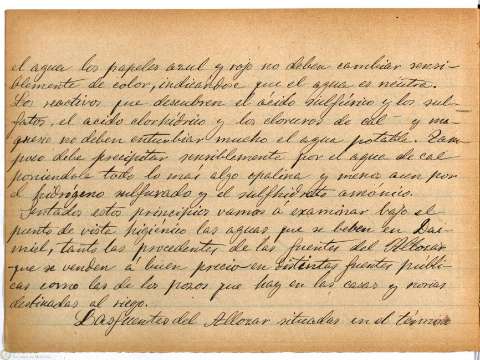 el agua los papeles azul y rojo no deben cambiar sensi-
blemente de color, indicandose que el agua es neutra.
Los reactivos que descubren el acido sulfúrico y los sul-
fatos, el acido clorhidrico y los cloruros de cal y mag
nesio no deben enturbiar mucho el agua potable. Tam
poco debe precipitar sensiblemente por el agua de cal
poniendola todo lo mas algo opalina y menos aun por
el hidrógeno sulfurado y el sulfhidrato amonico.
Sentados estos principios vamos á examinar bajo el
punto de vista higienico las aguas que se beben en Dai-
miel, tanto las procedentes de las fuentes del Allozar
que se venden a buen precio en distintas fuentes públi-
cas como las de los pozos que hay en las casas y norias
destinadas al riego.
Las fuentes del Allozar situadas en el término